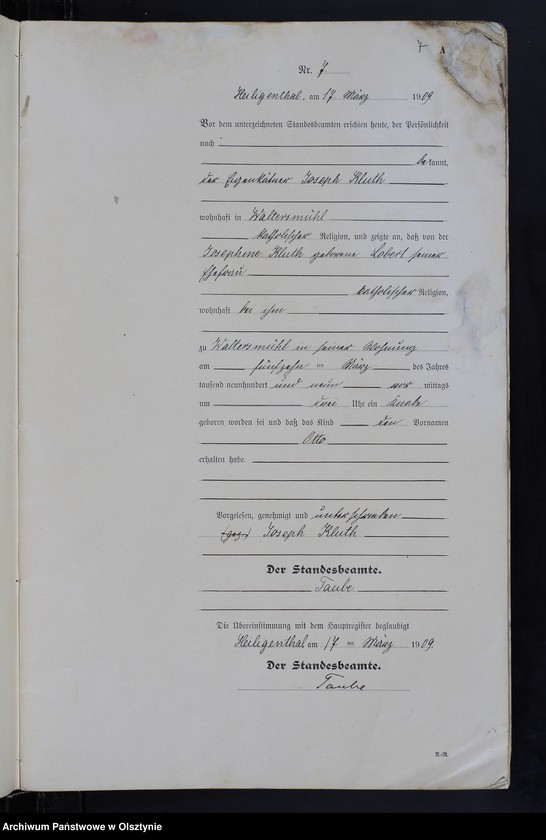 7 A
Nr. 7
Heiligenthal, am 17 März 1909.
Vor dem unterzeichneten Standesbeamten erschien heute, der Persönlichkeit
nach
bekannt,
der Eigenkätner Joseph Kluth
wohnhaft in Waltersmühl
katholischer Religion, und zeigte an, daß von der
Josephine Kluth geborene Lobert seiner
Ehefrau
katholischer Religion,
wohnhaft bei ihm
zu Waltersmühl in seiner Wohnung
am fünfzehn ten März des Jahres
tausend neunhundert und neun vor mittags
um drei Uhr ein Knabe
geboren worden sei und daß das Kind den Vornamen
Otto
erhalten habe.
Vorgelesen, genehmigt und unterschrieben
(gez.) Joseph Kluth
Der Standesbeamte.
Taube
Die Übereinstimmung mit dem Hauptregister beglaubigt
Heiligenthal am 17 ten März 1909.
Der Standesbeamte.
Taube
R.-R.
Archiwum Państwowe w Olsztynie